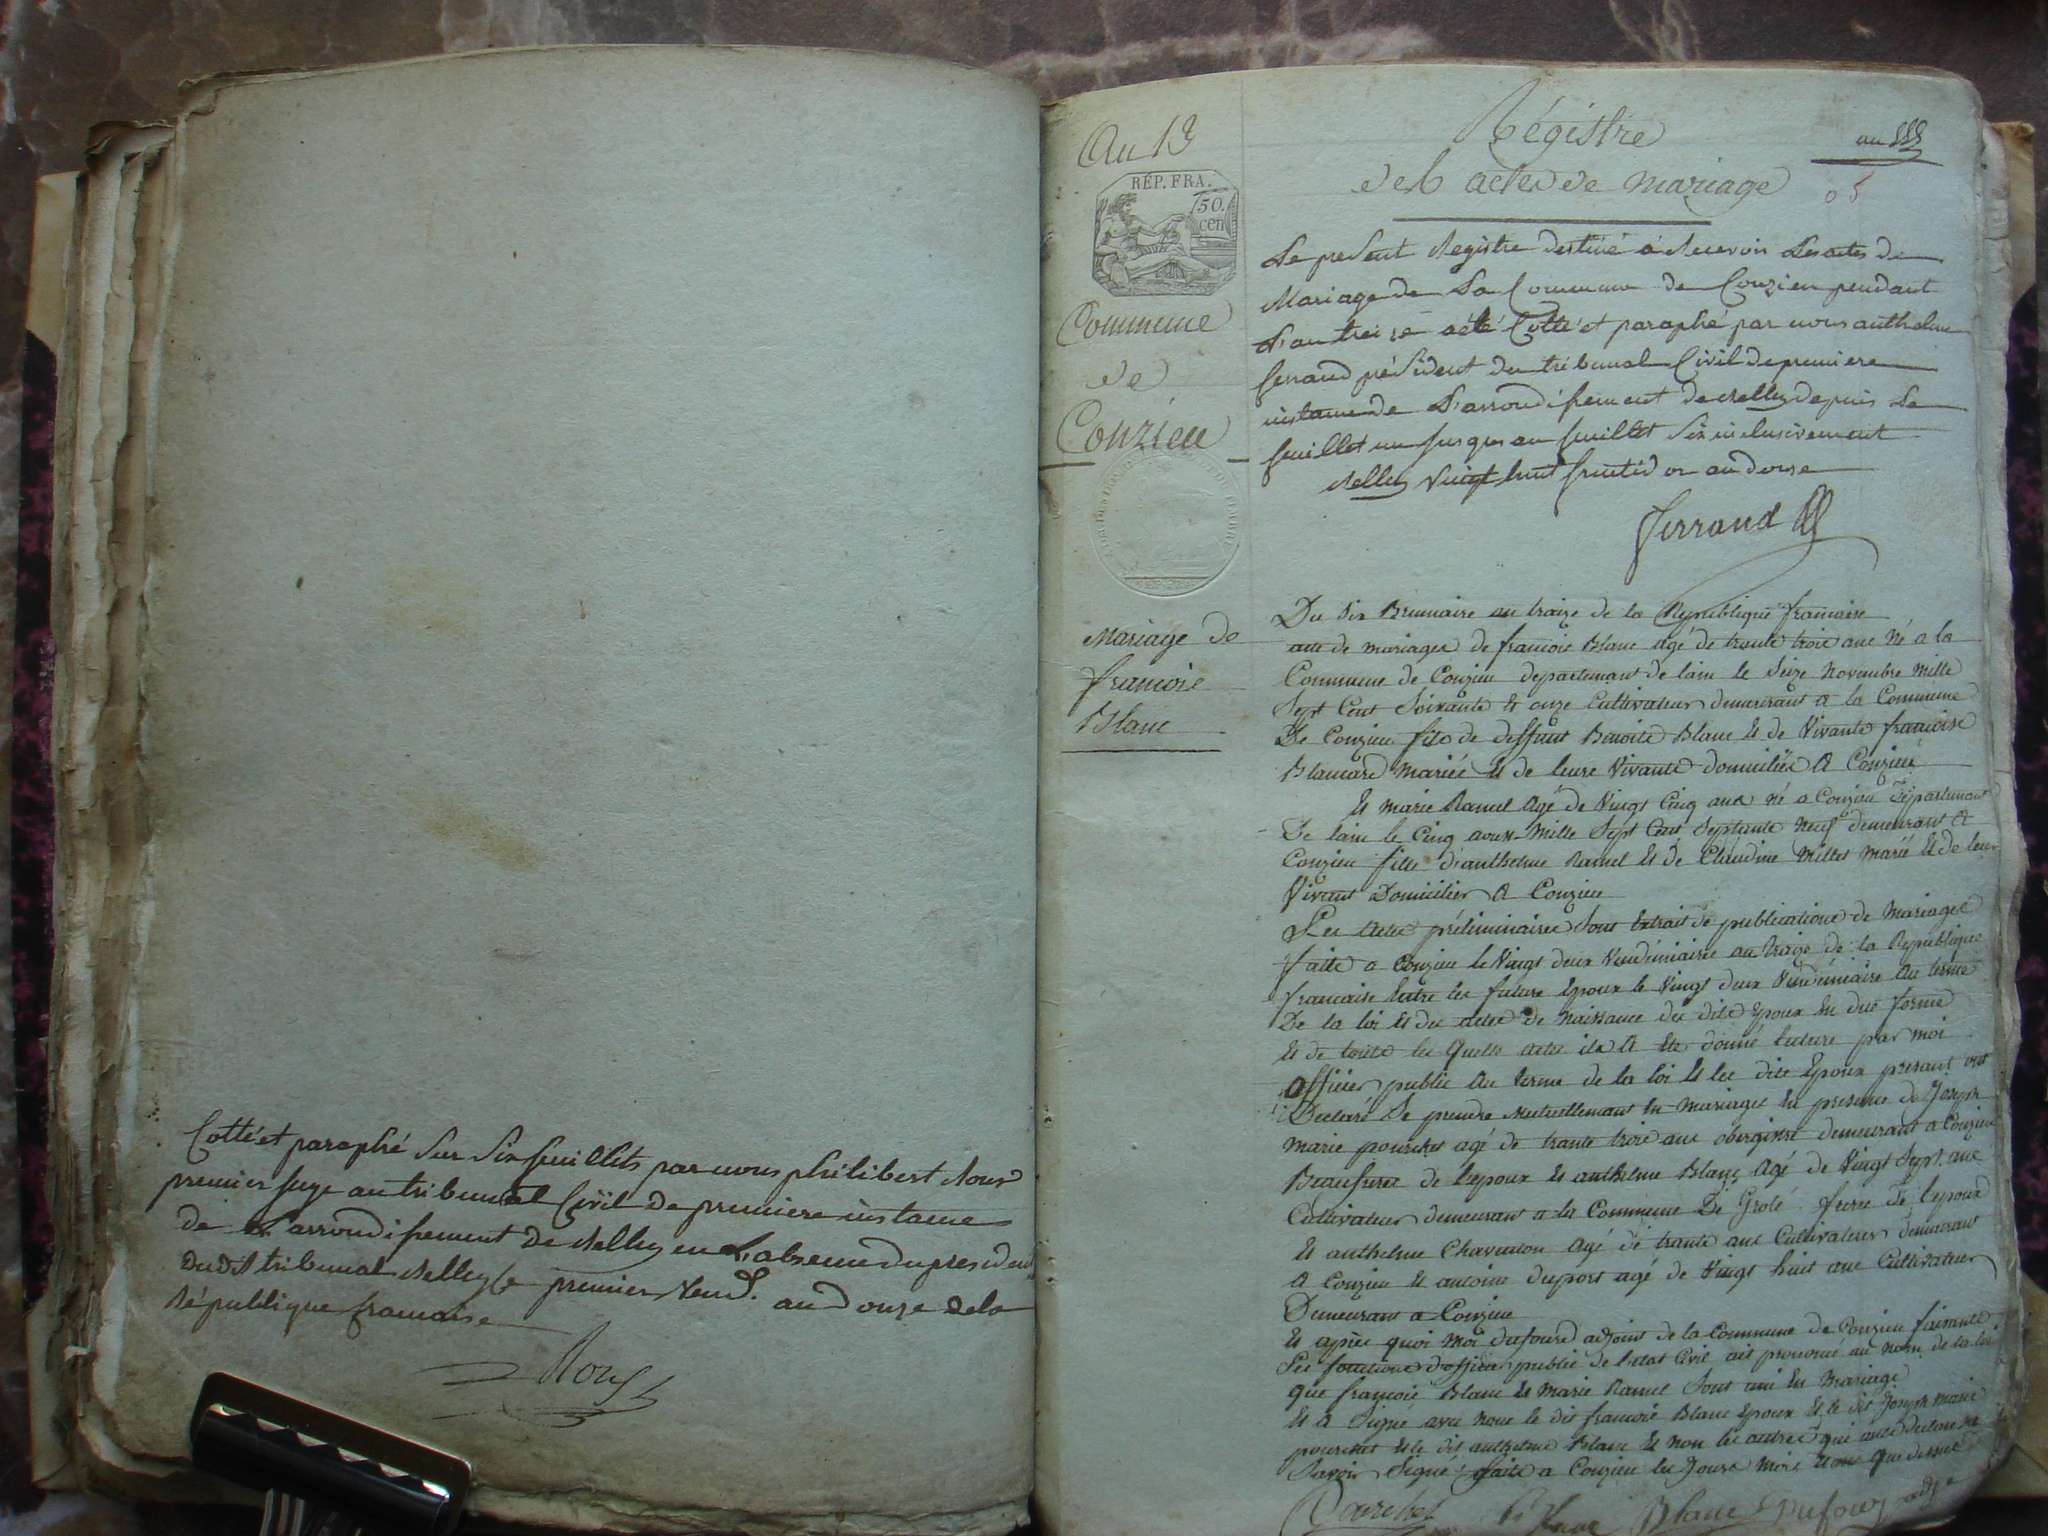 Cotté et paraphé Sur Six feuillets par nous philibert Roux
premier Juge au tribunal Civil de premiere instance
de L'arrondissement de Belley en L'absence du president
dudit tribunal Belley le premier Vend.re an douze de la
République francaise
Roux
An 13
RÉP. FRA.
50.
cen
Commune
de
Conzieu
Régistre
des actes de mariage
an
05
Le present Registre destiné a Recevoir Les actes de
Mariage de La Commune de Conzieu pendant
L'an treize a été Cotté et paraphé par nous anthelme
ferrand président du tribunal Civil de premiere
instance de L'arrondissement de Belley depuis Le
feuillet un Jusques au feuillet Six inclusivement
Belley Vingt huit fructidor an douze
ferrand
Mariage de
francois
Blanc
Du Six Brumaire an traize de la Republique francoise
acte de mariages de francois Blanc agé de trante trois ans Né a la
Commune de Conzieu departemant de lain le Seize Novembre Mille
Sept Cent Soixante et onze Cultivateur demeurant a la Commune
De Conzieu fils de deffunt Benoite Blanc et de Vivante francoise
Blancard Mariés et de leure Vivante domiciliés A Conzieu
Et marie Ramel Agé de Vingt Cinq ans Né a Conzieu Departemant
De lain le Cinq aoust Mille Sept Cent Septante Neuf demeurant A
Conzieu fille d'anthelme Ramel et de Claudine Millet Marié et de leur
Vivant Domicilier A Conzieu
Les actes préliminaires Sont Extrait de publications de Mariages
faite a Conzieu le Vingt deux Vendémiaires an traize de la Republique
francaise Entre les futurs Epoux le Vingt deux Vendémiaire Au terme
De la loi et des actes de Naissance des dits Epoux En due forme
Et de toute les Quelle actes ila A Eté donné lecture par moi
officier public Au terme de la loi Et les dits Epoux presant ont
Declaré Se prendre Mutuellemant En Mariages En presence de Joseph
Marie pourchet agé de trante trois ans obergiste demeurant a Conzieu
Beaufrere de l'epoux Et anthelme Blanc Agé de Vingt Sept ans
Cultivateur demeurant a la Commune De Grolé frere de l'epoux
Et anthelme Chaventon Agé de trante ans Cultivateur demeurant
A Conzieu Et antoine duport agé de Vingt huit ans Cultivateur
Demeurant a Conzieu
Et après quoi Moi dufourd adjoint de la Commune de Conzieu faisant
Ses fonctions d'officier public de l'etat Civil ait prononcé au nom de la loi
que francois Blanc Et Marie Ramel Sont uni En Mariage
Et A Signé avec Nous le dit francois Blanc Epoux Et le dit Joseph marie
pourchet Et le dit anthelme Blanc Et Non les autres qui ont declaré ne
Savoir Signé faite a Conzieu les Jours Mois Et ans Que dessus
Pourchet Blanc Blanc Dufour adj